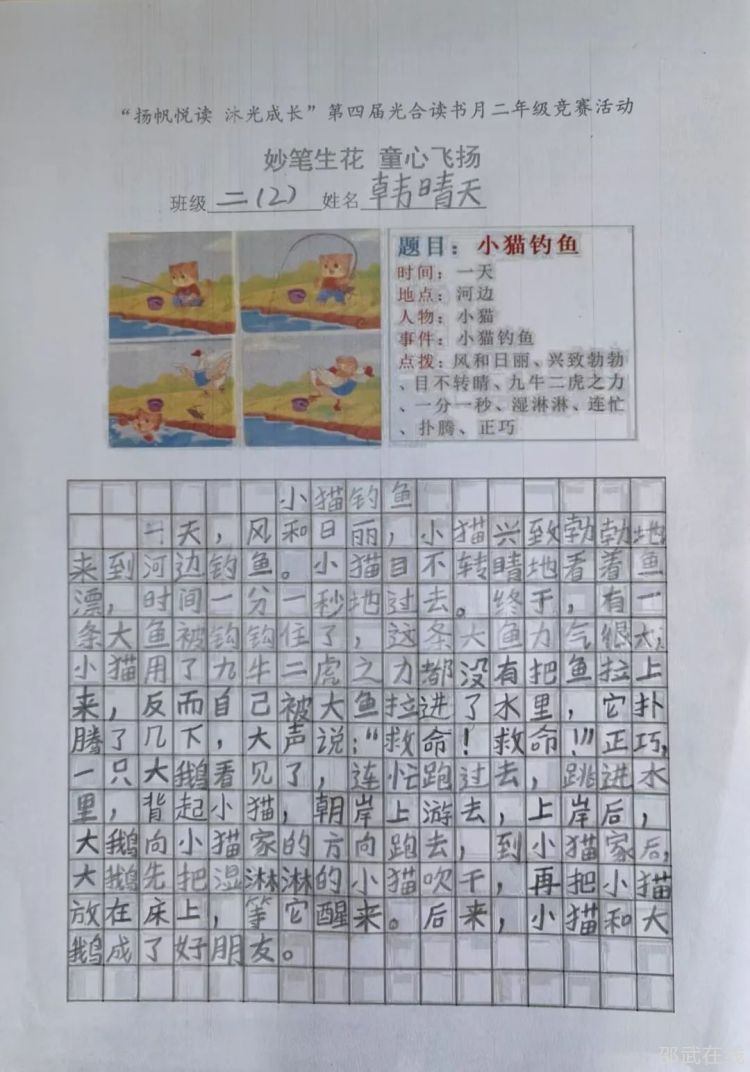 “扬帆悦读 沐光成长”第四届光合读书月二年级竞赛活动
妙笔生花 童心飞扬
班级 二(2) 姓名 韩晴天
题目：小猫钓鱼
时间：一天
地点：河边
人物：小猫
事件：小猫钓鱼
点拨：风和日丽、兴致勃勃
、目不转睛、九牛二虎之力
、一分一秒、湿淋淋、连忙
、扑腾、正巧
小猫钓鱼
一天，风和日丽，小猫兴致勃勃地
来到河边钓鱼。小猫目不转睛地看着鱼
漂，时间一分一秒地过去。终于，有一
条大鱼被钩钩住了，这条大鱼力气很大，
小猫用了九牛二虎之力都没有把鱼拉上
来，反而自己被大鱼拉进了水里，它扑
腾了几下，大声说：“救命！救命！”正巧，
一只大鹅看见了，连忙跑过去，跳进水
里，背起小猫，朝岸上游去，上岸后，
大鹅向小猫家的方向跑去，到小猫家后，
大鹅先把湿淋淋的小猫吹干，再把小猫
放在床上，等它醒来。后来，小猫和大
鹅成了好朋友。
邵武在线